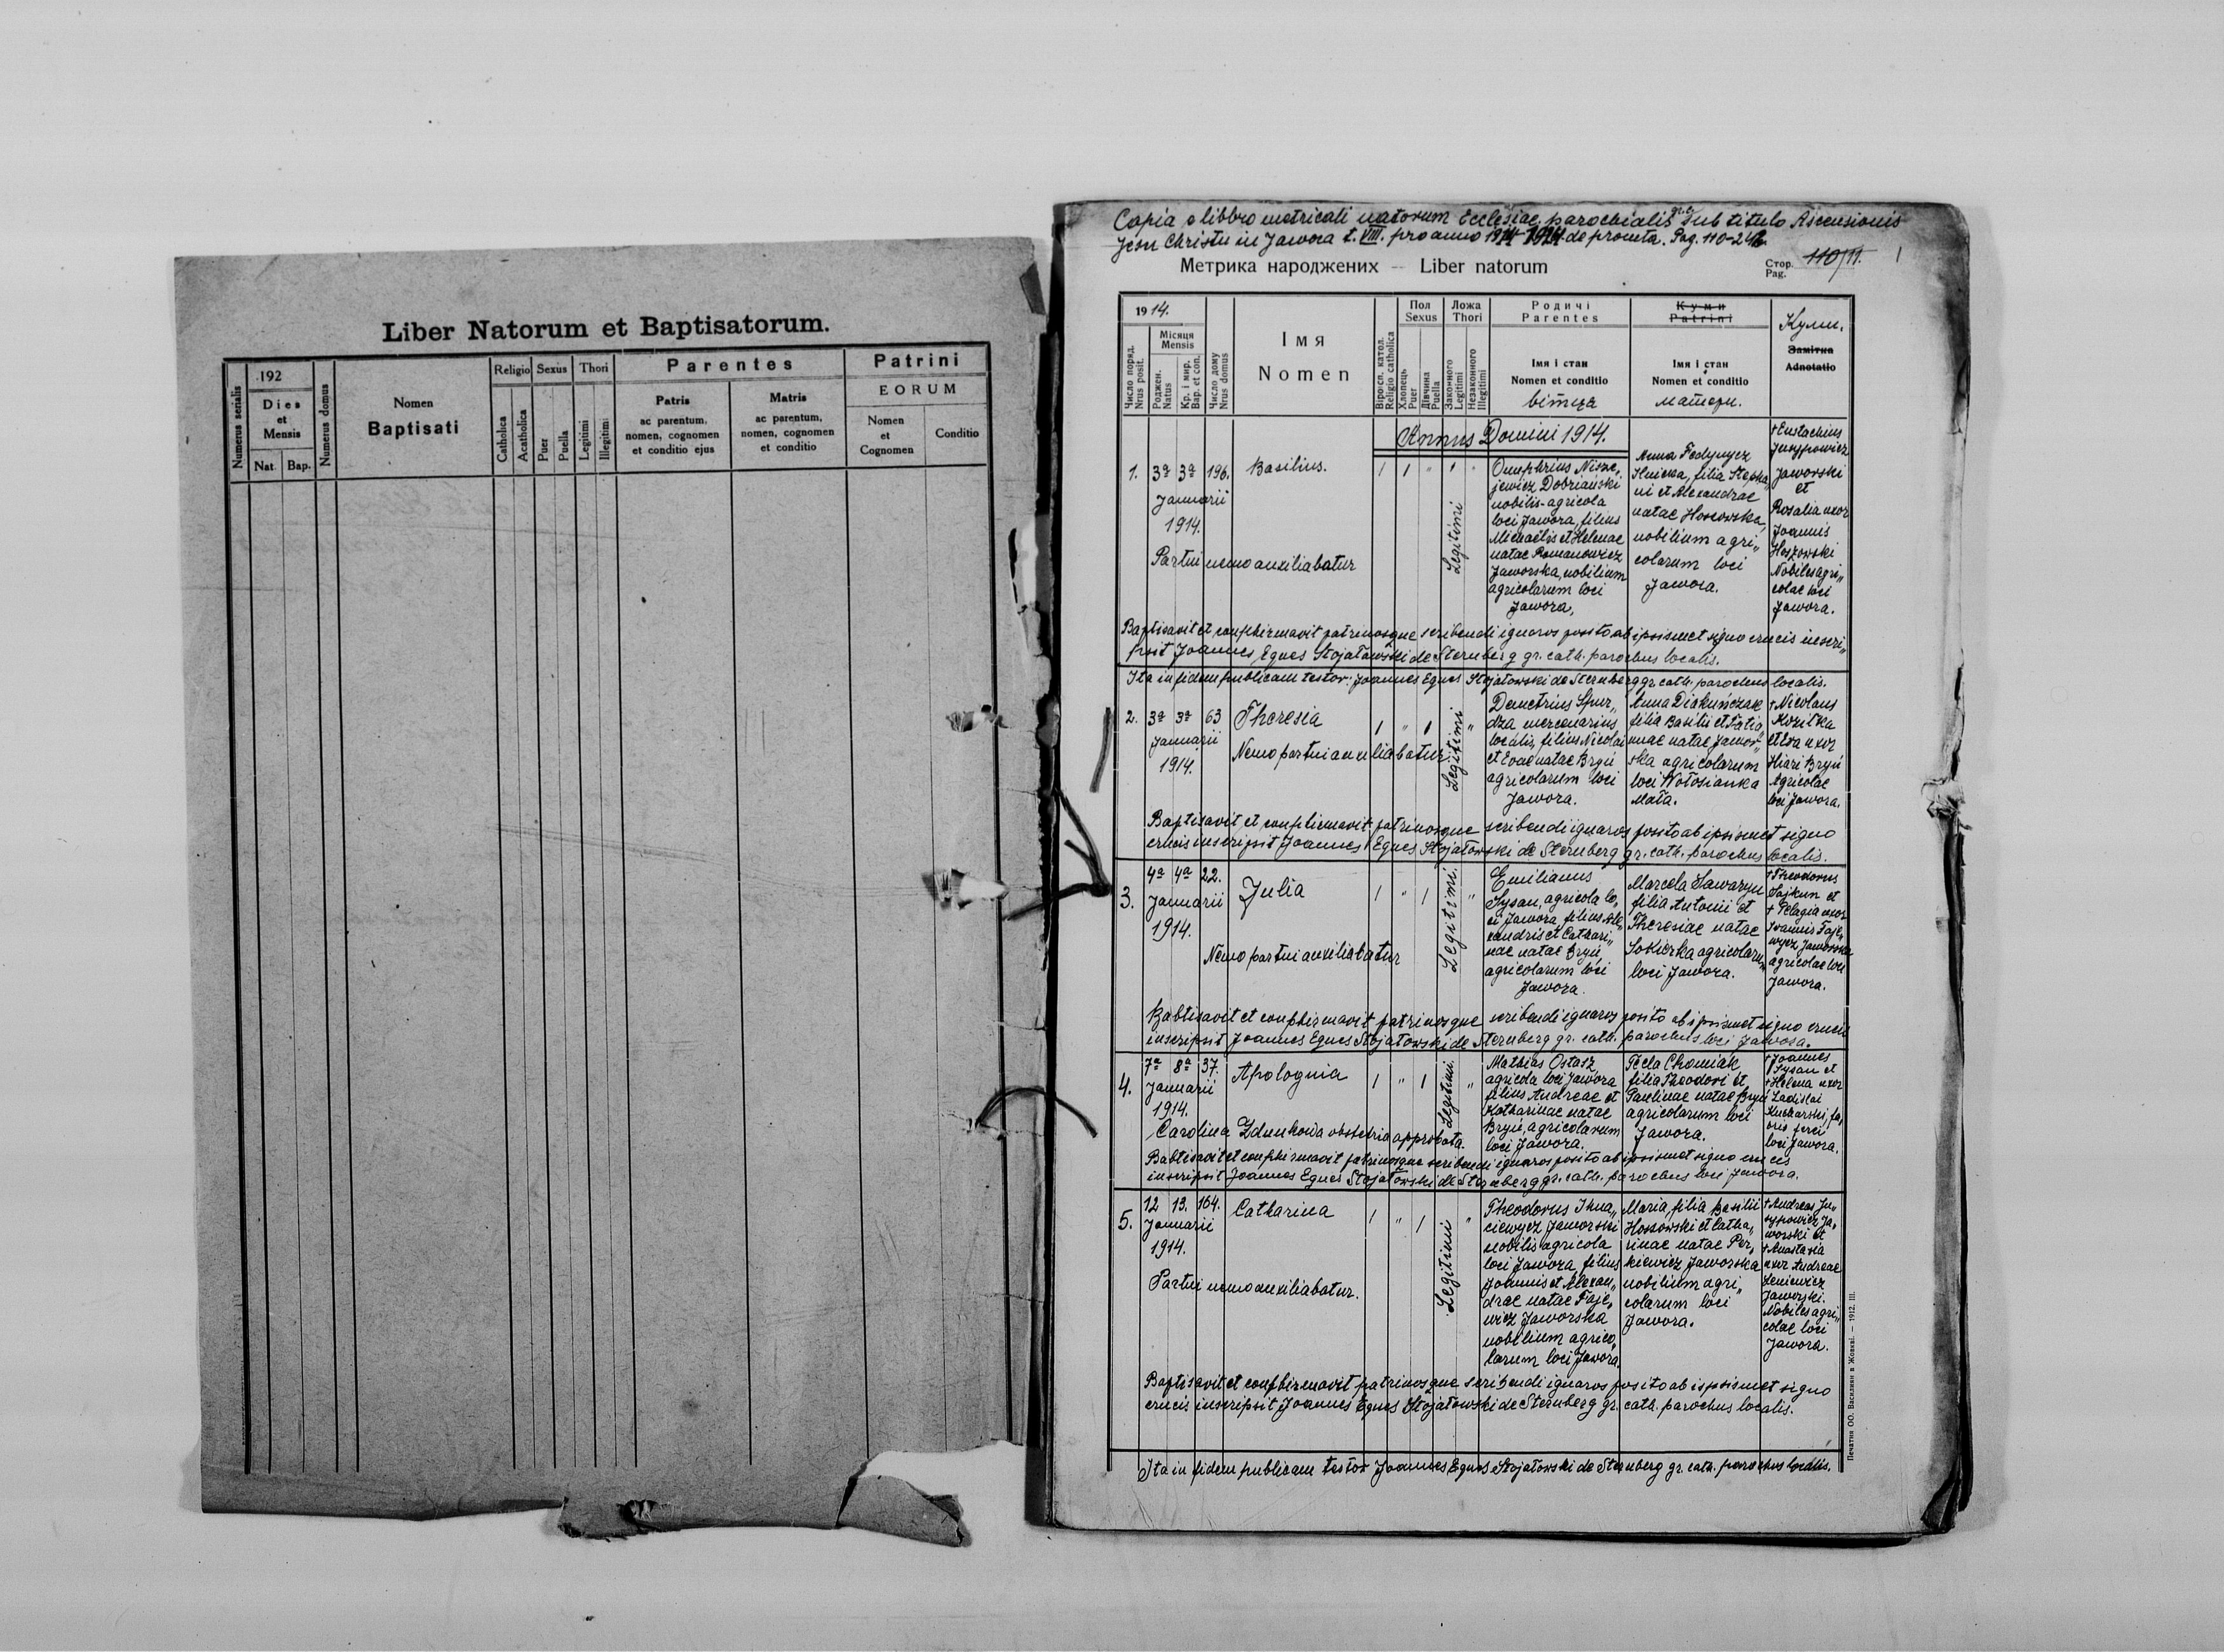 Liber Natorum et Baptisatorum.
Numerus serialis
192
Dies
et
Mensis
Nat.
Bap.
Numerus domus
Nomen
Baptisati
Religio
Catholica
Acatholica
Sexus
Puer
Puella
Thori
Legitimi
Illegitimi
Parentes
Patris
ac parentum,
nomen, cognomen
et conditio ejus
Matris
ac parentum,
nomen, cognomen
et conditio
Patrini
EORUM
Nomen
et
Cognomen
Conditio
Copia e libbro metricali natorum Ecclesiae parochialis gr.c. sub titulo Ascensionis
Jesu Christu in Jawora t. VIII. pro anno 1914 de promta. Pag. 110-242
Метрика народжених — Liber natorum
Стор.
Pag.
110/11.
1
1914.
Число поряд.
Nrus posit.
Місяця
Mensis
Роджен.
Natus
Кр. і мир.
Bap. et con.
Число дому
Nrus domus
Імя
Nomen
Віросп. катол.
Religio catholica
Пол
Sexus
Хлопець
Puer
Дівчина
Puella
Ложа
Thori
Законного
Legitimi
Незаконного
Illegitimi
Родичі
Parentes
Імя і стан
Nomen et conditio
вітця
Куми
Patrini
Імя і стан
Nomen et conditio
матери.
Куми.
Замітка
Adnotatio
Annus Domini 1914.
1. 3ª 3ª 196. Basilius. 1 1 " 1 "
Januarii
1914.
Partui nemo auxiliabatur
Legitimi
Onuphrius Nisze„
jewicz Dobriański
nobilis-agricola
loci Jawora, filius
Michaelis et Helenae
natae Romanowicz
Jaworska, nobilium
agricolarum loci
Jawora,
Anna Fedynycz
Ilnicka, filia Stepha„
ni et Alexandrae
natae Hoszowska,
nobilium agri„
colarum loci
Jawora.
+ Eustachius
Juzypowicz
Jaworski
et
Rosalia uxor
Joannis
Hoszowski
Nobiles agri„
colae loci
Jawora.
Baptisavit et conphirmavit patrinosque scribendi ignaros posito ab ipsismet signo crucis inscri„
psit Joannes Eques Stojałowski de Sternberg gr. cath. parochus localis.
Ita in fidem publicam testor: Joannes Eques Stojałowski de Sternberg gr. cath. parochus localis.
2. 3ª 3ª 63 Theresia 1 " 1 "
Januarii
1914.
Nemo partui auxiliabatur
Legitimi
Demetrius Spur„
dza mercenarius
localis, filius Nicolai
et Evae natae Bryń
agricolarum loci
Jawora.
Anna Diakunczak
filia Basilii et Tatia„
nae natae Jawor„
ska agricolarum
loci Wołosianka
Mała.
+ Nicolaus
Kozitka
et Eva uxor
Hiari Bryń
Agricolae
loci Jawora.
Baptisavit et conphirmavit patrinosque scribendi ignaros posito ab ipsismet signo
crucis inscripsit Joannes Eques Stojałowski de Sternberg gr. cath. parochus localis.
3. 4ª 4ª 22. Julia 1 " 1 "
Januarii
1914.
Nemo partui auxiliabatur
Legitimi.
Emilianus
Sysan, agricola lo„
ci Jawora filius Ale„
xandris et Cathari„
nae natae Bryń,
agricolarum loci
Jawora.
Marcela Sawaryn
filia Antonii et
Theresiae natae
Sokierka agricolaru„
loci Jawora.
+ Theodorus
Sajkun et
+ Pelagia uxor
Joannis Faje„
wycz Jaworska
agricolae loci
Jawora.
Babtisavit et conphirmavit patrinosque scribendi ignaros posito ab ipsismet signo crucis
inscripsit Joannes Eques Stojałowski de Sternberg gr. cath. parochus loci Jawora.
4. 7ª 8ª 37. Apolognia 1 " 1 "
Januarii
1914.
Carolina Zdunkowa obstetria approbata.
Legitimi.
Mathias Ostasz
agricola loci Jawora
filius Andreae et
Katharinae natae
Bryń, agricolarum
loci Jawora.
Tecla Chomiak
filia Theodori et
Paulinae natae Bryń
agricolarum loci
Jawora.
+ Joannes
Sysan et
+ Helena uxor
Ladislai
Kucharski, fa„
bris ferri
loci Jawora.
Babtisavit et conphirmavit patrinosque scribendi ignaros posito ab ipsismet signo crucis
inscripsit Joannes Eques Stojałowski de Sternberg gr. cath. parochus loci Jawora.
5. 12 13. 164. Catharina 1 " 1 "
Januarii
1914.
Partui nemo auxiliabatur.
Legitimi
Theodorus Ihna„
ciewycz Jaworski
nobilis agricola
loci Jawora, filius
Joannis et Alexan„
drae natae Faje„
wicz Jaworska
nobilium agrico„
larum loci Jawora.
Maria, filia Basilii
Hoszowski et Catha„
rinae natae Per„
kiewicz Jaworska
nobilium agri„
colarum loci
Jawora.
+ Andreas Ju„
zypowicz Ja„
worski et
+ Anastasia
uxor Andreae
Zeniewicz
Jaworski.
Nobiles agri„
colae loci
Jawora.
Baptisavit et conphirmavit patrinosque scribendi ignaros posito ab ispsismet signo
crucis inscripsit Joannes Eques Stojałowski de Sternberg gr. cath. parochus localis.
Ita in fidem publicam testor Joannes Eques Stojałowski de Sternberg gr. cath. parochus localis.
Печатня ОО. Василиян в Жовкві. — 1912. III.